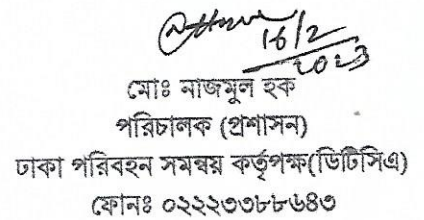 16/2
2023
মোঃ নাজমুল হক
পরিচালক (প্রশাসন)
ঢাকা পরিবহন সমন্বয় কর্তৃপক্ষ(ডিটিসিএ)
ফোনঃ ০২২২৩৩৮৮৬৪৩